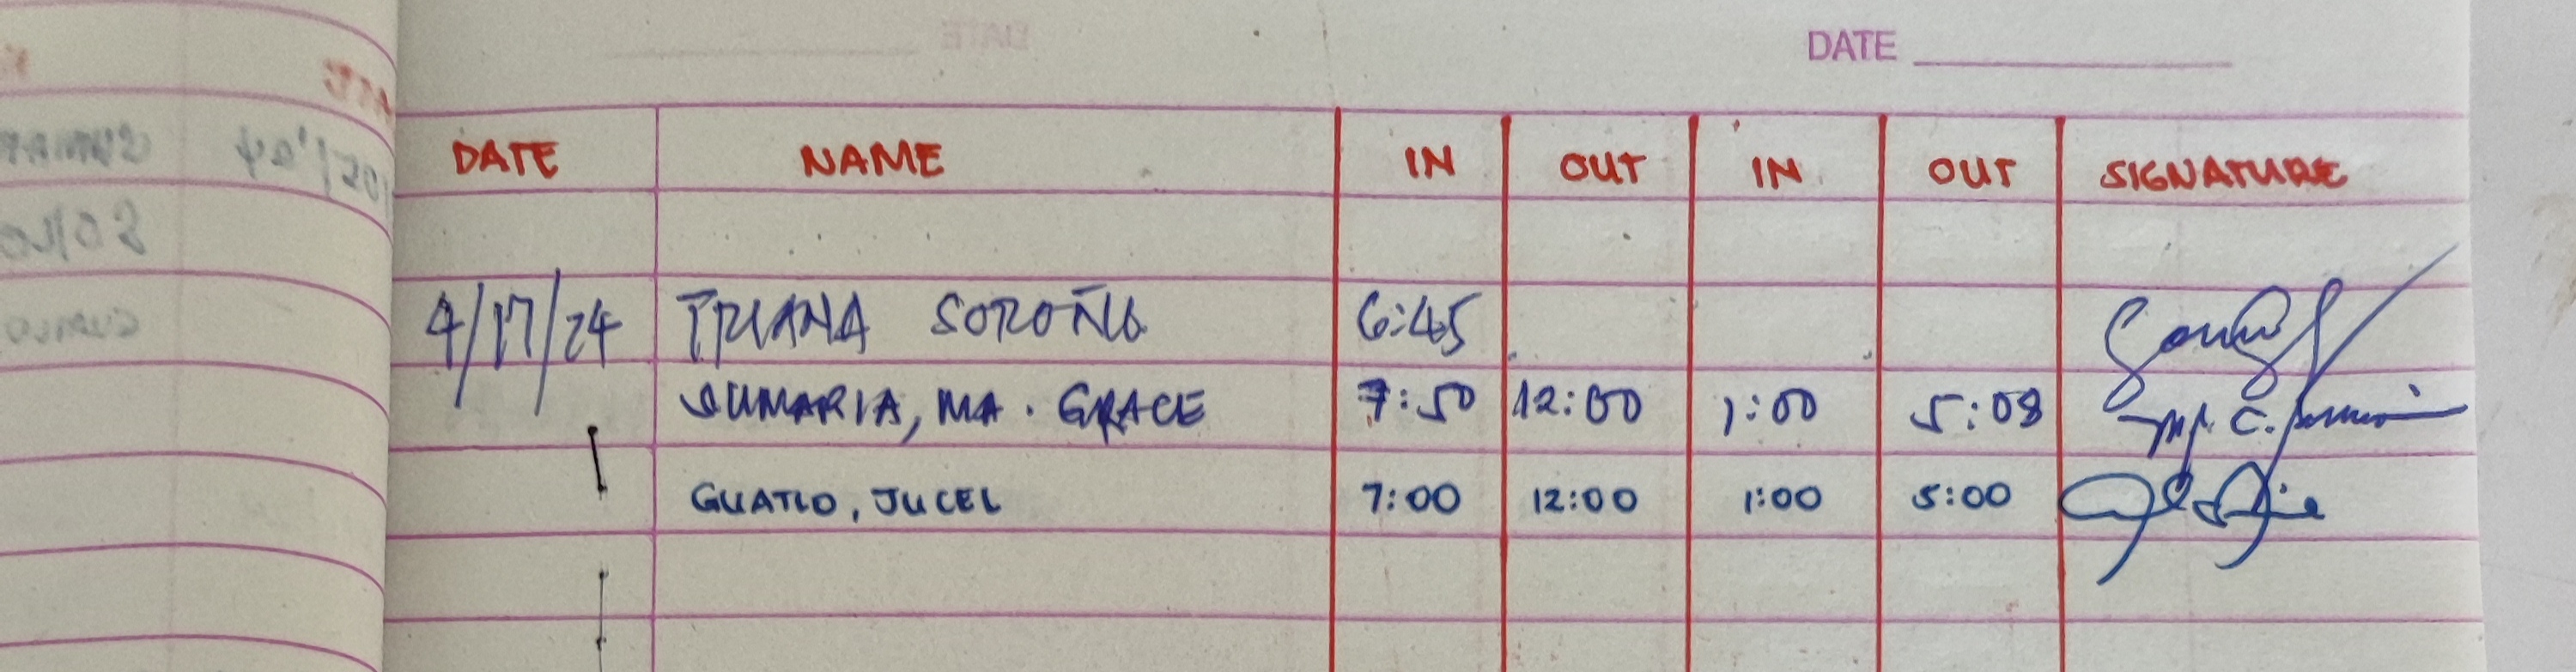 DATE
DATE NAME IN OUT IN OUT SIGNATURE
4/17/24 TRIANA SOROÑU 6:45
SUMARIA, MA. GRACE 7:50 12:00 1:00 5:08
GUATLO, JUCEL 7:00 12:00 1:00 5:00